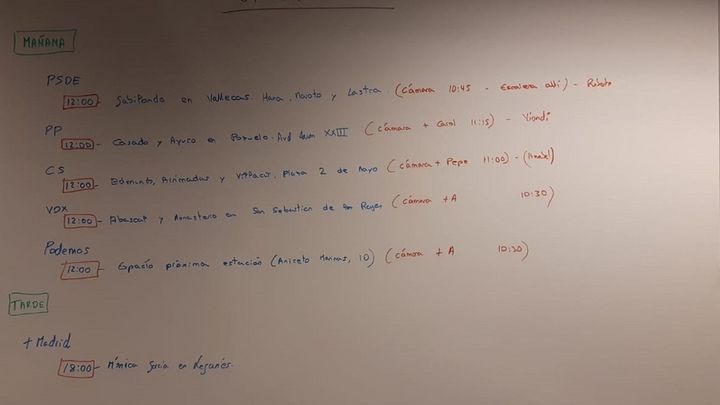 MAÑANA
PSOE
12:00 - Gabilondo en Vallecas. Hana, Maroto y Lastra. (cámara 10:45 - Escalera allí) - Roberto
PP
12:00 - Casado y Ayuso en Pozuelo. Avd Juan XXIII (cámara + Carol 11:15) -
CS
12:00 - Edmundo, Arrimadas y Villacís. Plaza 2 de Mayo (cámara + Pepe 11:00) - (Anabel)
VOX
12:00 - Abascal y Monasterio en San Sebastián de los Reyes (cámara + A 10:30)
Podemos
12:00 - Espacio próxima estación (Aniceto Marinas, 10) (cámara + A 10:30)
TARDE
+ Madrid
18:00 - Mónica García en Leganés.